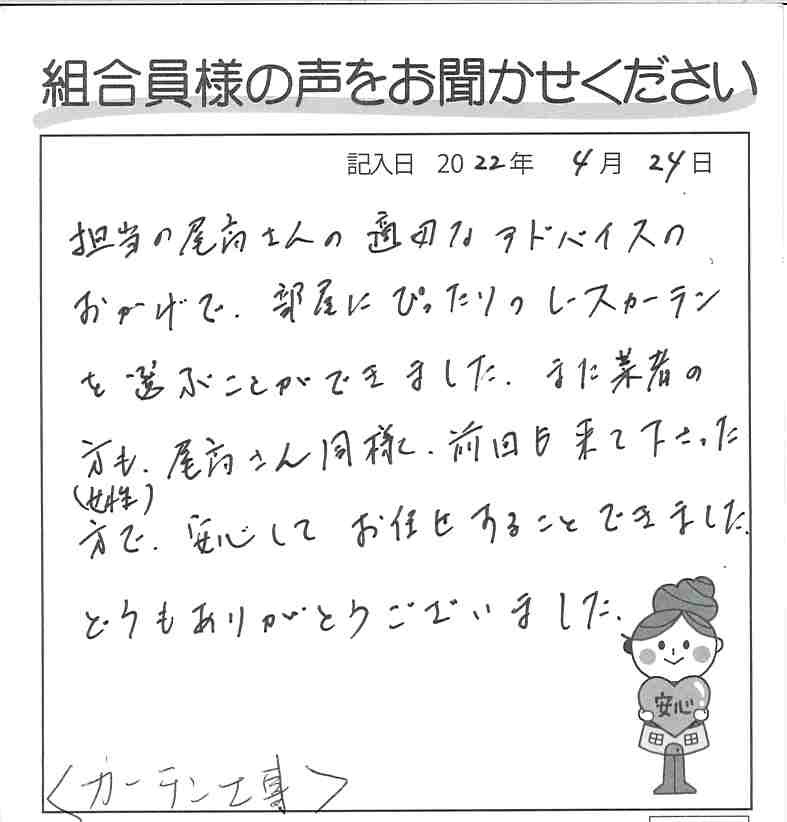 組合員様の声をお聞かせください
記入日 2022年 4月 24日
担当の尾高さんの適切なアドバイスの
おかげで、部屋にぴったりのレースカーテン
を選ぶことができました。また業者の
方も、尾高さん同様に、前回も来て下さった
(女性)
方で、安心して お任せすることできました。
どうもありがとうございました。
安心
<カーテン工事>